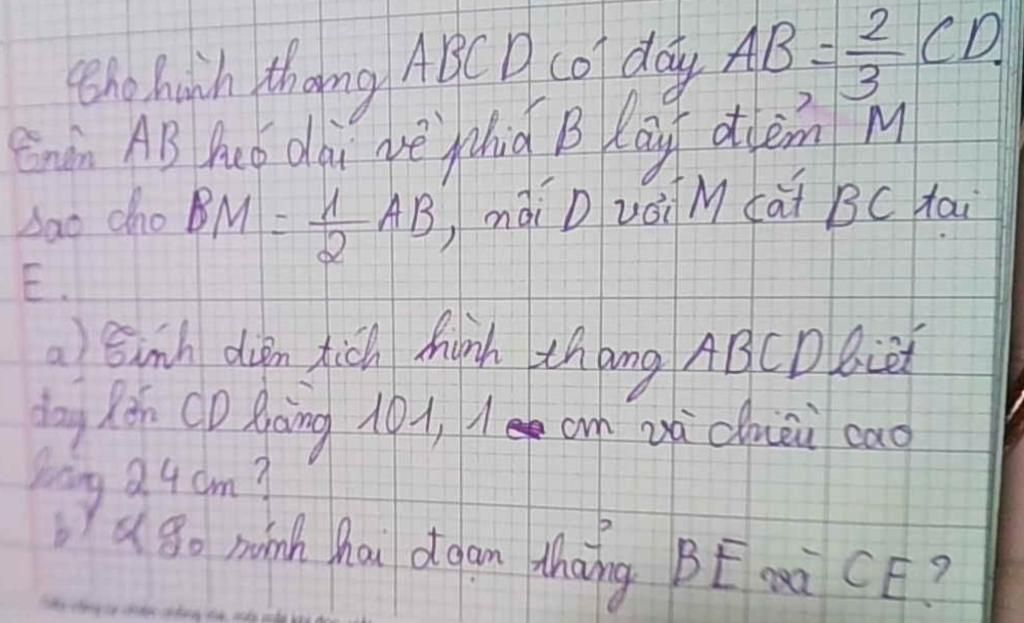 Cho hình thang ABCD có đáy AB = 2/3 CD.
Trên AB kéo dài về phía B lấy điểm M
sao cho BM = 1/2 AB, nối D với M cắt BC tại
E.
a) Tính diện tích hình thang ABCD biết
đáy lớn CD bằng 101,1 cm và chiều cao
bằng 24 cm?
b) So sánh hai đoạn thẳng BE và CE?